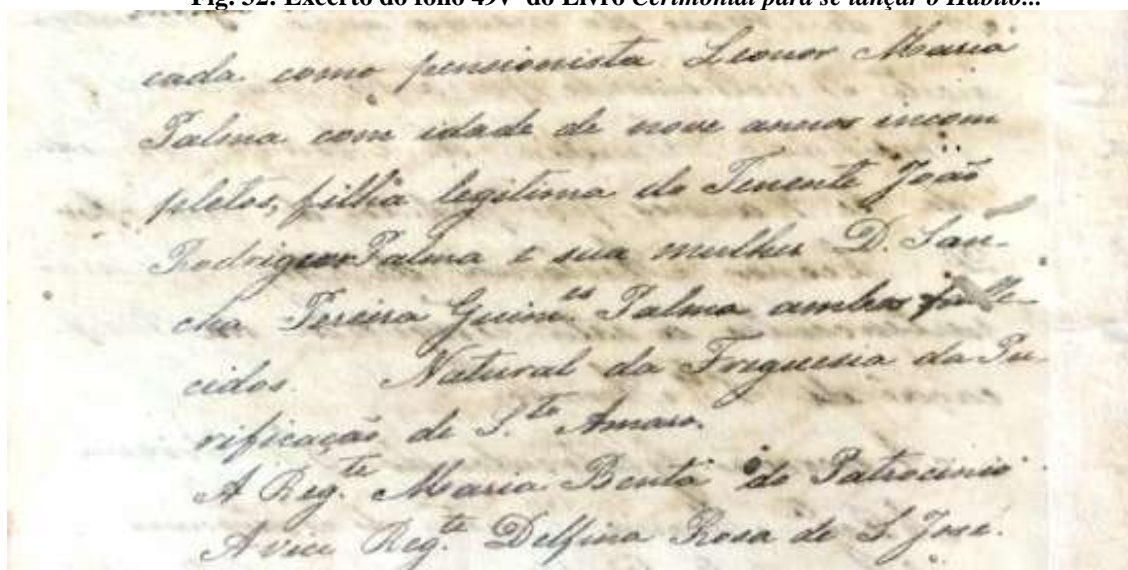 Fig. 32: Excerto do fólio 49v do Livro Cerimonial para se lançar o Hábito...
cada como pensionista Leonor Maria
Palma com idade de nove annos incom
pletos, filha legitima do Tenente João
Rodrigues Palma e sua mulher D. San-
cha Pereira Guim.es Palma ambos falle
cidos. Natural da Freguesia da Pu-
rificação de S.to Amaro.
A Reg.te Maria Benta do Patrocinio
A vice Reg.te Delfina Rosa de S. José.